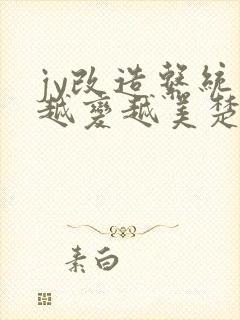 jy改造系統
越變越美楚
素白